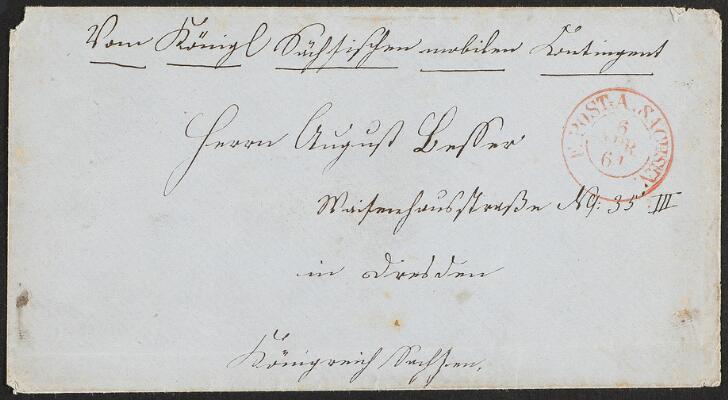 Vom Königl Sächsischen mobilen Contingent
F. POST. A. SACHSEN.
6
APR
64
Herrn August Besser
Waisenhausstraße No: 35 III
in Dresden
Königreich Sachsen.